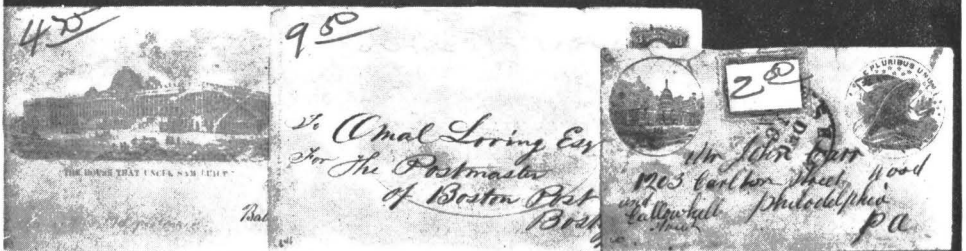 4 50
THE HOUSE THAT UNCLE SAM BUILT
Bal
9 50
To Omal Loring Esq
For The Postmaster
of Boston Post
Bost
2 50
PLURIBUS UNUM
DEC
Mr John Carr
1203 Carlton Street, Wood
and Callowhill Philadelphia
Street Pa